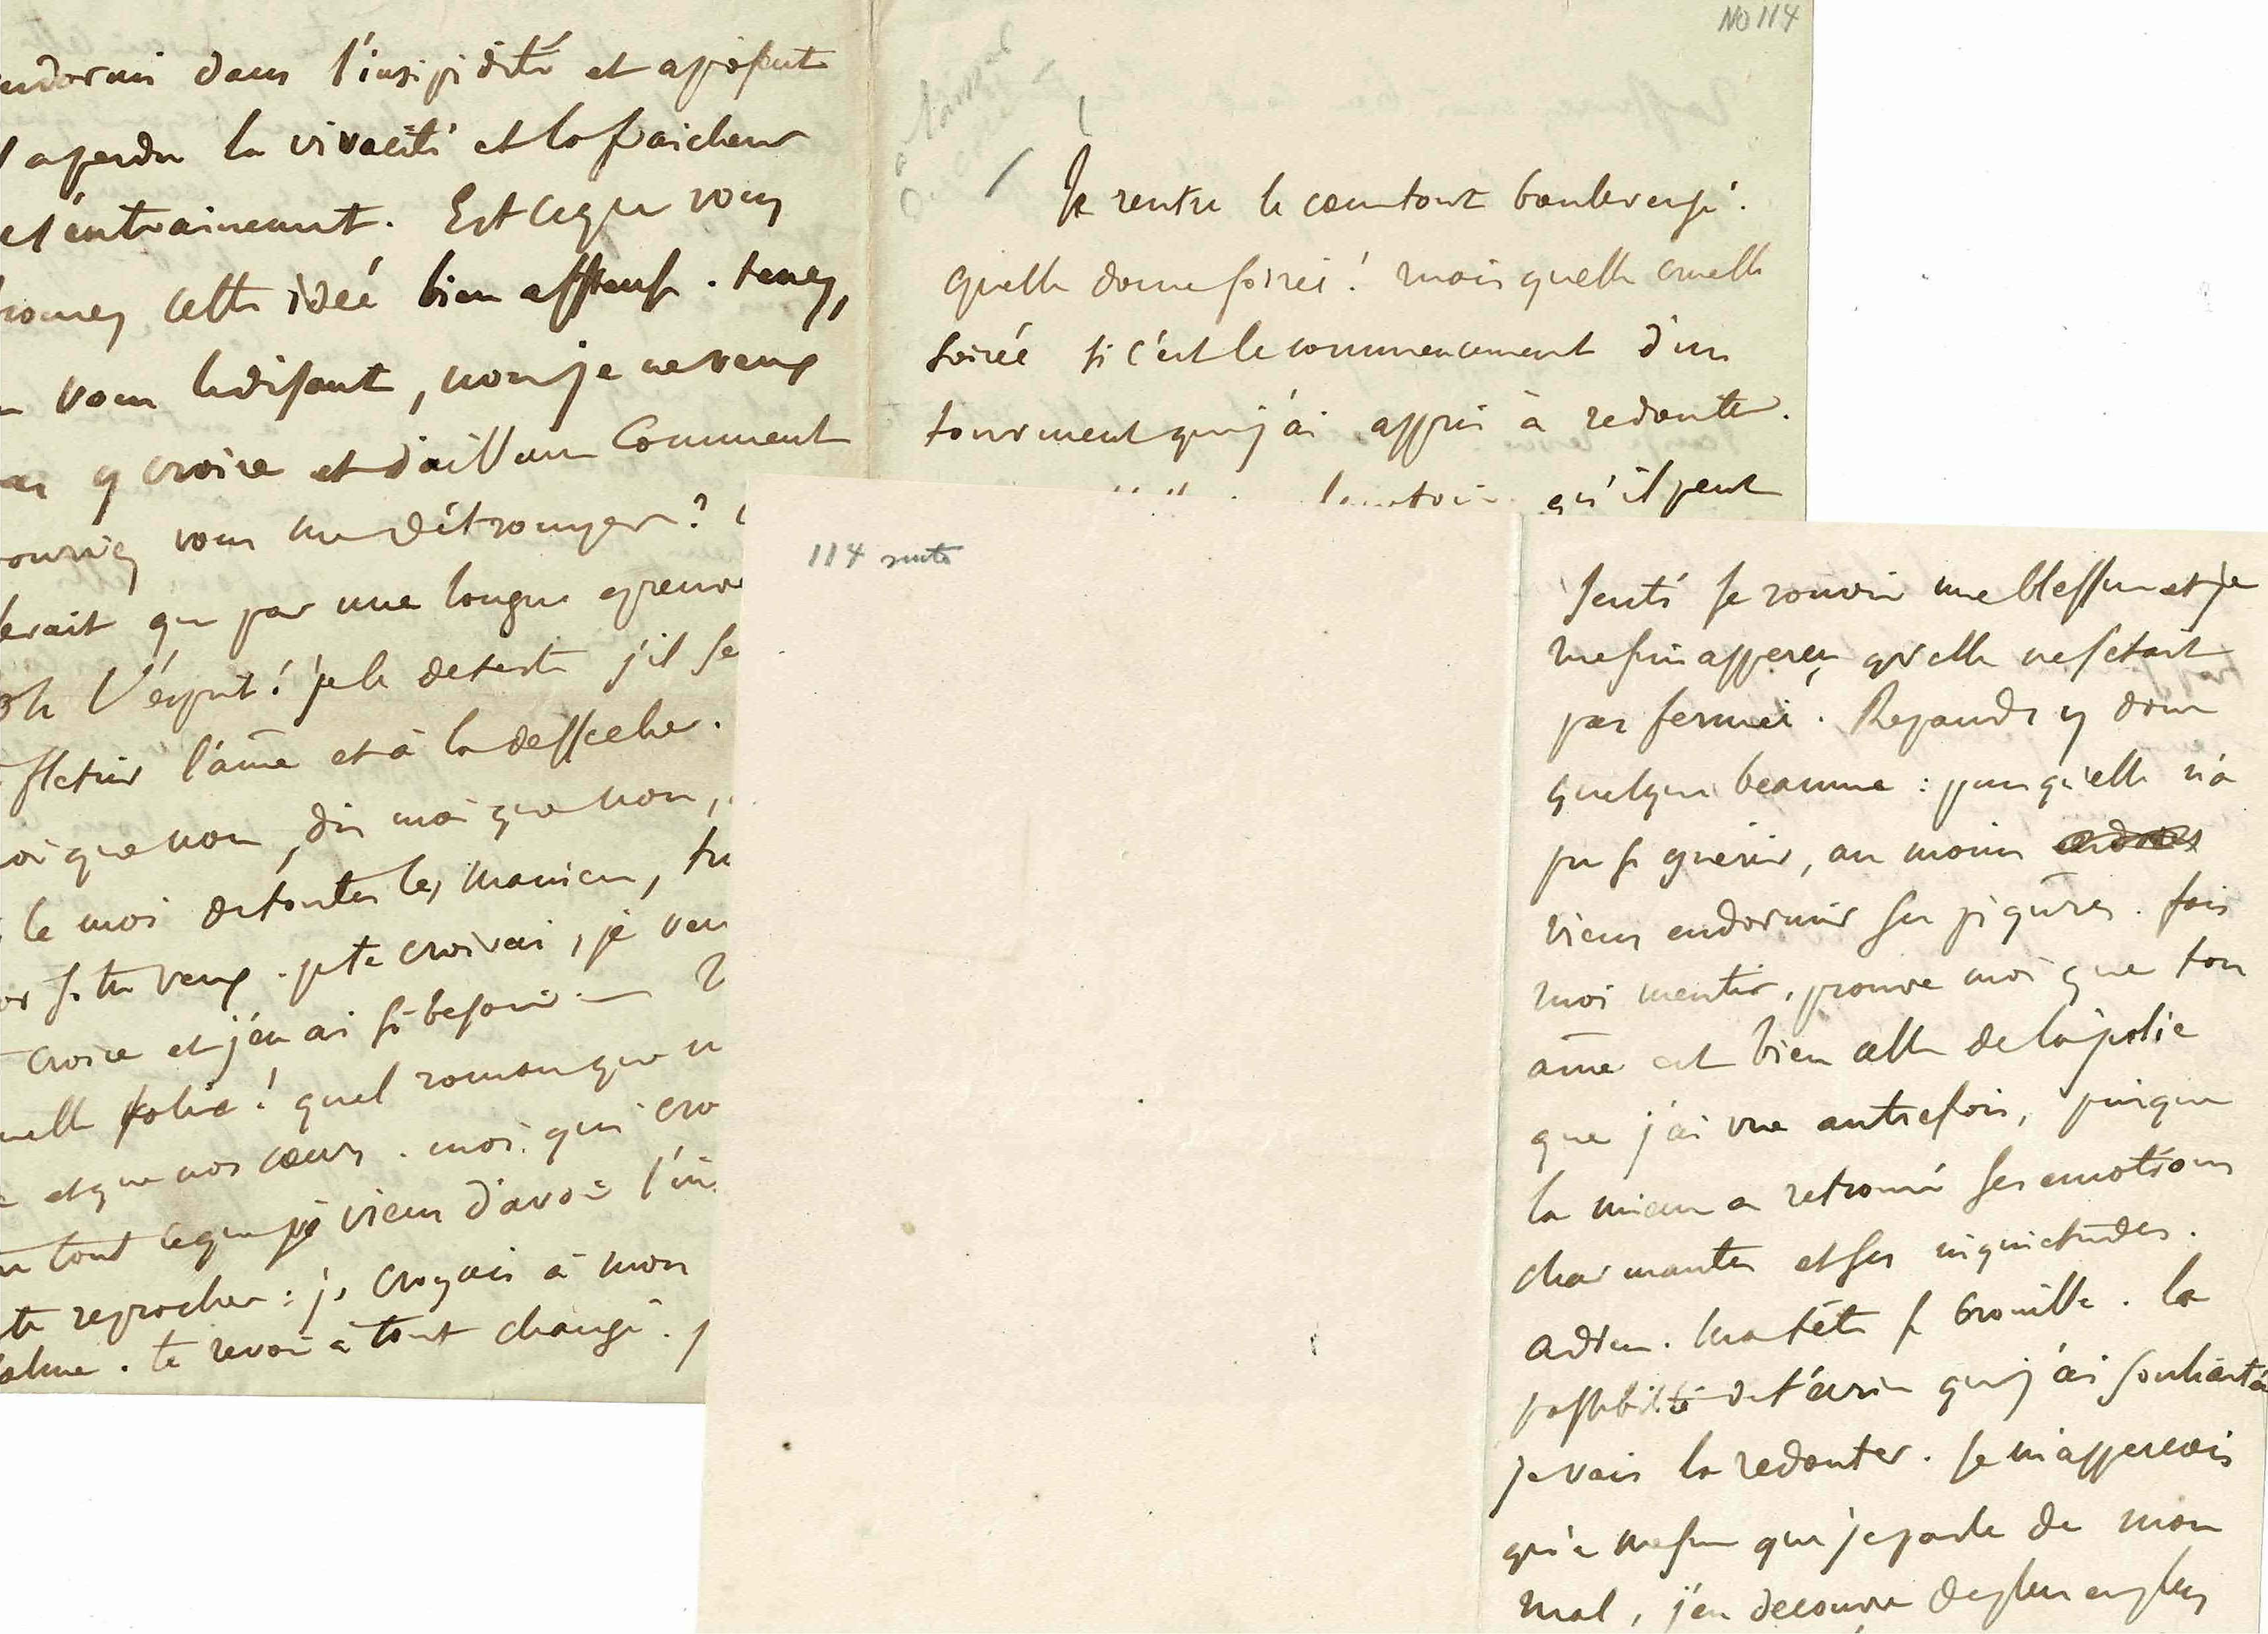 endormi dans l'insipidité et
a perdu la vivacité et la fraicheur
et l'entrainement. Est ce que vous
cette idée bien affreuse. tenez,
vous le disant, non je ne veux
y croire et d'ailleurs Comment
vous me détromper ?
que par une longue
oh l'esprit ! je le deteste s'il se
fletrir l'âme et à la dessecher.
que non, dis moi que non,
le moi de toutes les manieres, tu
si tu veux. je te croirai, je
croire et j'en ai si besoin —
folie ! quel roman que
et que nos cœurs. moi qui
tout ce que je viens d'avoir
te reprocher : je croyais à mon
calme. te revoir a tout changé.
NO 114
Je rentre le cœur tout bouleversé.
quelle douce soirée ! mais quelle cruelle
soirée si c'est le commencement d'un
tourment que j'ai appris à redouter.
qu'il peut
114 suite
senti se rouvrir une blessure et je
me suis apperçu qu'elle ne s'etait
pas fermée. Repands y donc
quelque beaume : puisqu'elle n'a
pu se guerir, au moins
viens endormir ses piqûres. fais
moi mentir, prouve moi que ton
âme est bien celle de la jolie
que j'ai vue autrefois, puisque
la mienne a retrouvé ses emotions
charmantes et ses inquietudes.
adieu. ma tête se brouille. la
possibilité de t'écrire que j'ai souhaitée
je vais la redouter. Je m'apperçois
qu'à mesure que je parle de mon
mal, j'en decouvre de plus en plus